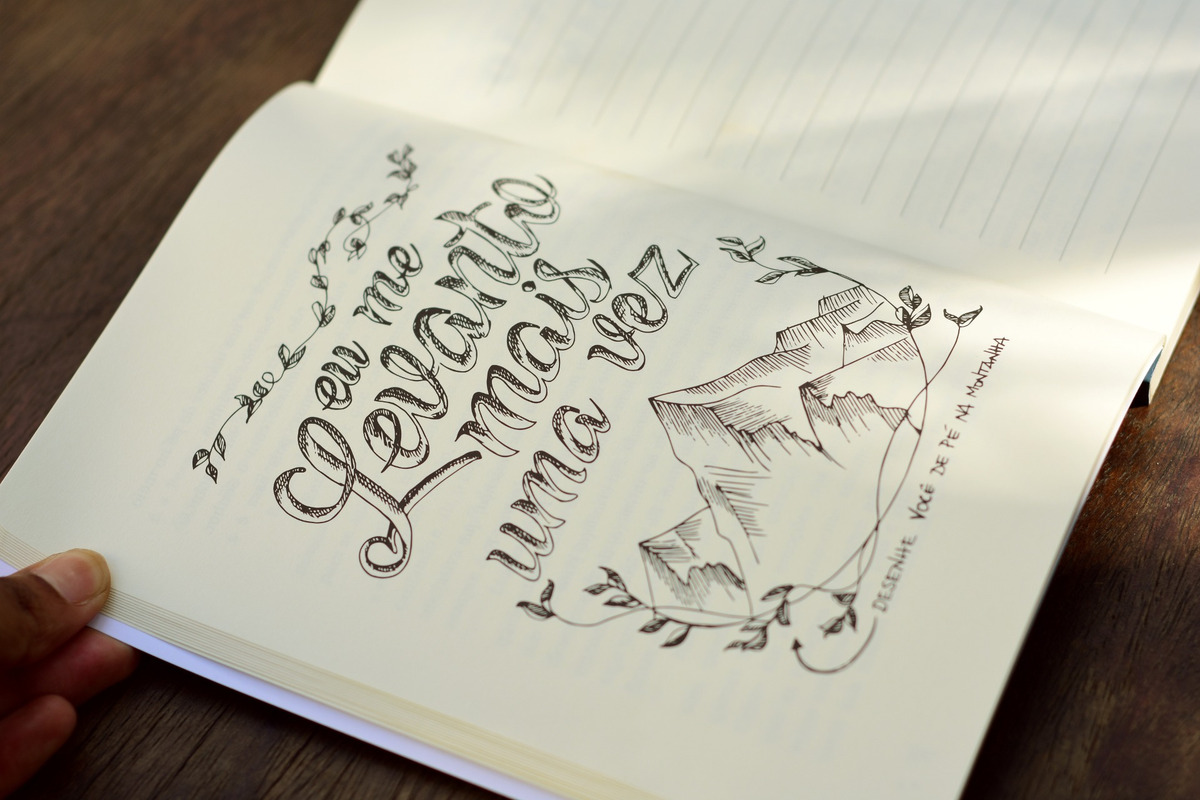 eu me
Levanto
mais
uma vez
DESENHE VOCÊ DE PÉ NA MONTANHA